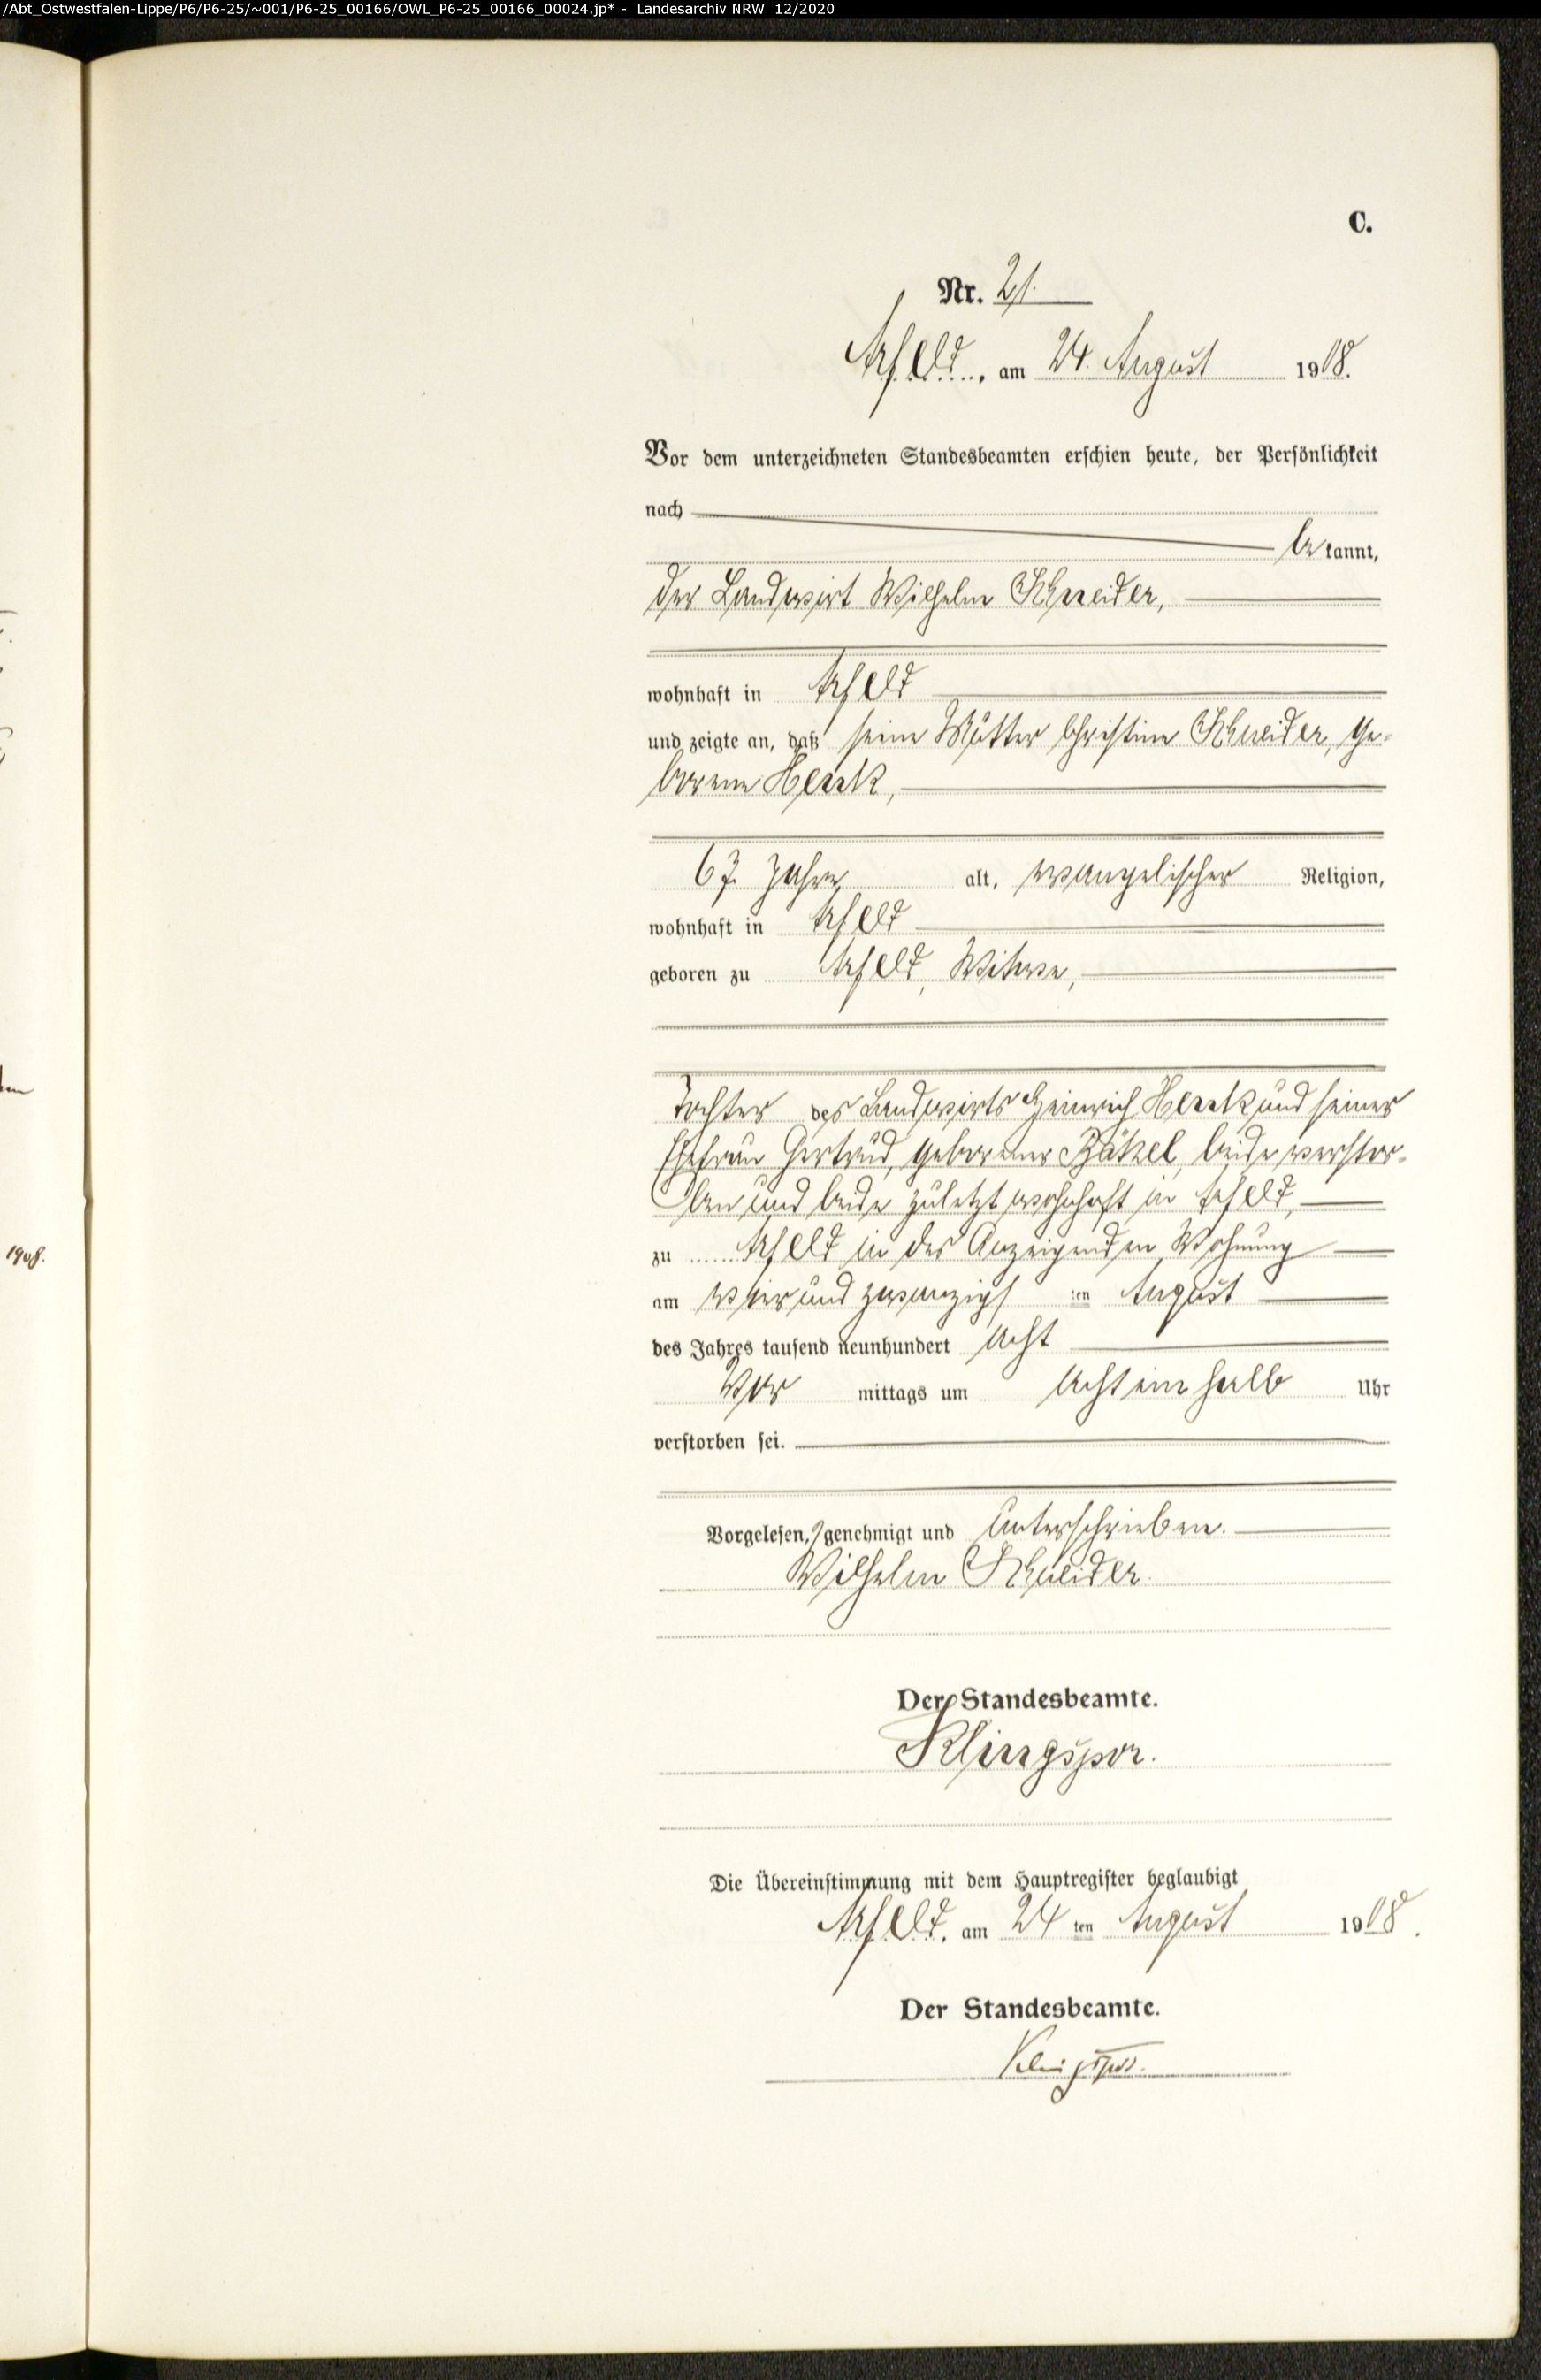 /Abt_Ostwestfalen-Lippe/P6/P6-25/~001/P6-25_00166/OWL_P6-25_00166_00024.jp* - Landesarchiv NRW 12/2020
C.
Nr. 21.
Arfeld, am 24. August 1908.
Vor dem unterzeichneten Standesbeamten erschien heute, der Persönlichkeit
nach
bekannt,
der Landwirt Wilhelm Schneider,
wohnhaft in Arfeld
und zeigte an, daß seine Mutter Christine Schneider, ge-
borene Henk,
67 Jahre alt, evangelischer Religion,
wohnhaft in Arfeld
geboren zu Arfeld, Witwe,
Tochter des Landwirts Heinrich Henk und seiner
Ehefrau Gertrud, geborener Bäkel, beide verstor-
ben und beide zuletzt wohnhaft in Arfeld,
zu Arfeld in des Anzeigenden Wohnung
am vier und zwanzigsten August
des Jahres tausend neunhundert acht
Vor mittags um acht ein halb Uhr
verstorben sei.
Vorgelesen, genehmigt und unterschrieben.
Wilhelm Schneider.
Der Standesbeamte.
Klingspor.
Die Übereinstimmung mit dem Hauptregister beglaubigt
Arfeld, am 24 ten August 1908.
Der Standesbeamte.
Klingspor.
1908.